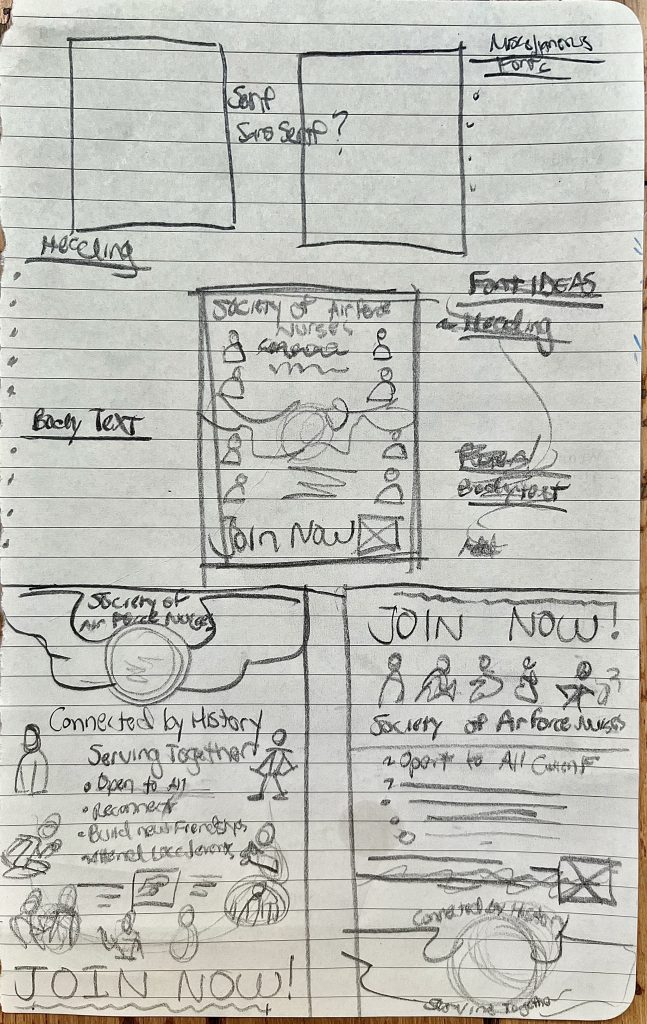 Miscellaneous
Fonts
Serif
Sans Serif ?
Heading
Font IDEAS
Heading
Body Text
Body text
Society of Air Force
Nurses
Join Now
Society of
Air Force Nurses
Connected by History
Serving Together
Open to All
Reconnect
Build new Friendships
Attend Local events
JOIN NOW!
JOIN NOW!
Society of Air Force Nurses
Open to All Current
Connected by History
Serving Together